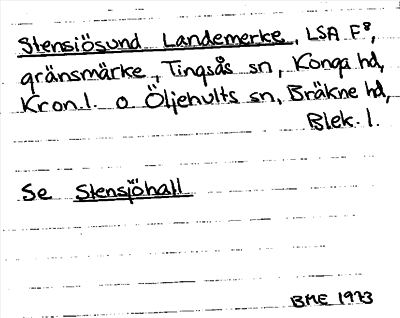 Stensiösund Landemerke, LSA F⁸,
gränsmärke, Tingsås sn, Konga hd,
Kron.l. o Öljehults sn, Bräkne hd,
Blek. l.
Se Stensjöhall
BME 1973